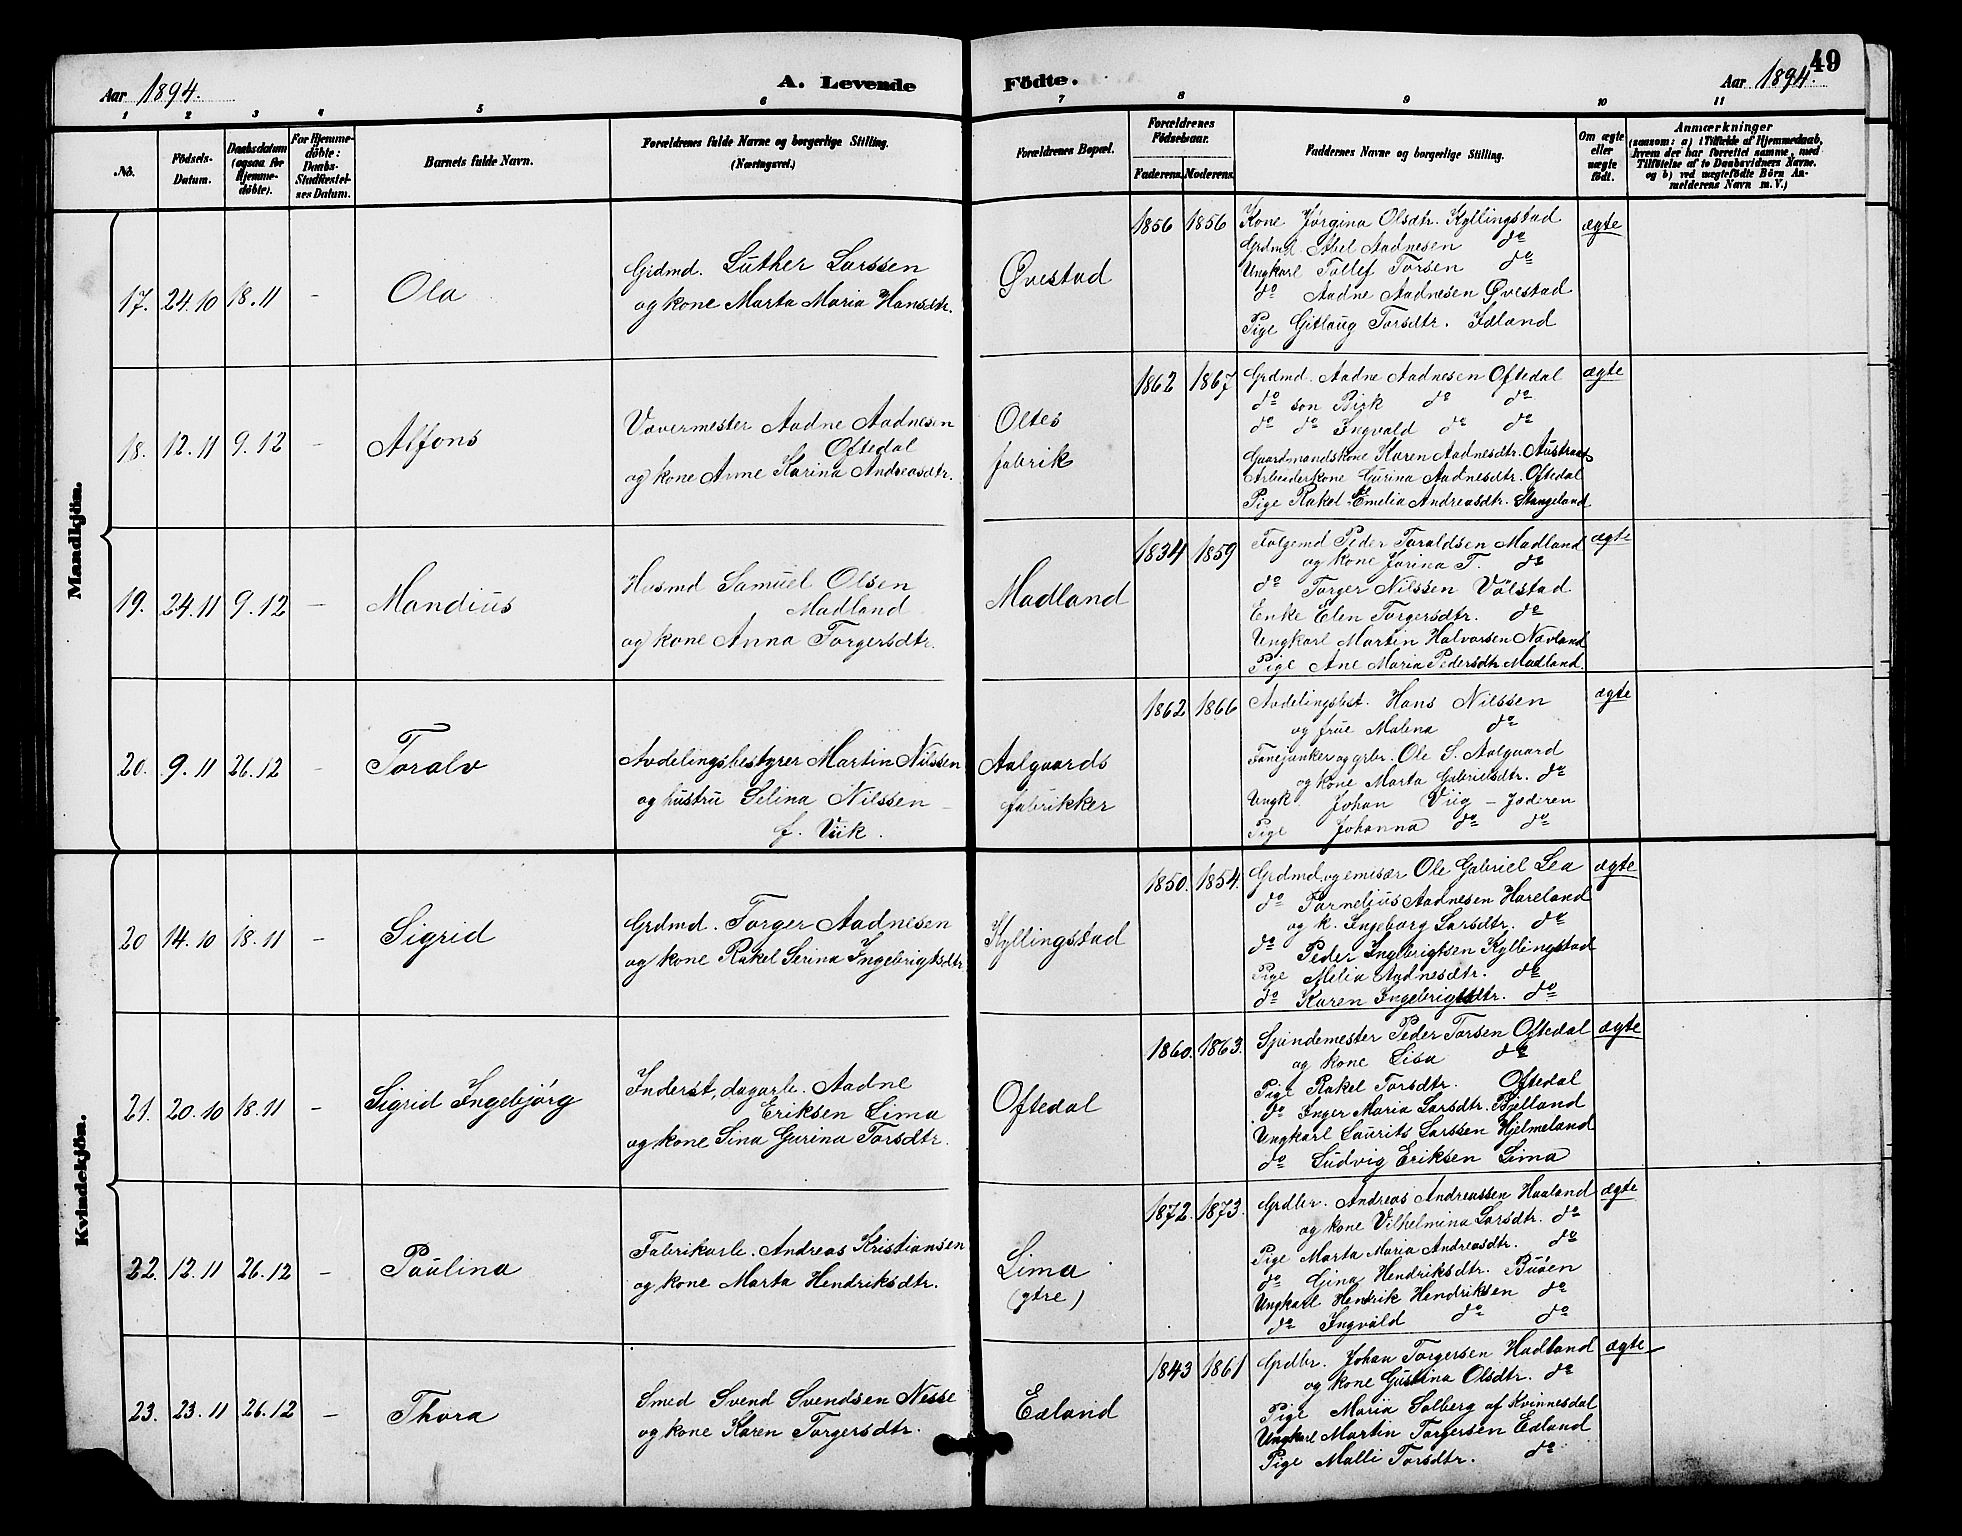 49
Aar 1894. A. Levende Födte. Aar 1894.
1 2 3 4 5 6 7 8 9 10 11
No. Födsels-Datum. Daabsdatum (ogsaa for Hjemme-döbte). For Hjemme-döbte: Daabs Stadfæstel-ses Datum. Barnets fulde Navn. Forældrenes fulde Navne og borgerlige Stilling. (Næringsvei.) Forældrenes Bopæl. Forældrenes Födselsaar. Faderens. Moderens. Faddernes Navne og borgerlige Stilling. Om ægte eller uægte födt. Anmærkninger (saasom: a) i Tilfælde af Hjemmedaab, hvem der har forrettet samme, med Tilföielse af to Daabsvidners Navne. og b) ved uægtefödte Börn An-melderens Navn m. V.)
Mandkjön.
17. 24.10 18.11 - Ola
Grdmd. Luther Larssen
og kone Marta Maria Hansdtr.
Øvestad
1856 1856
Kone Jørgina Olsdtr. Kyllingstad
Grdmd. Abel Aadnesen do
Ungkarl Tollef Torsen do
do Aadne Aadnesen Øvestad
Pige Gitlaug Torsdtr. Idland
ægte
18. 12.11 9.12 - Alfons
Vævermester Aadne Aadnesen
Oftedal
og kone Anne Karina Andreasdtr.
Oltes
fabrik
1862 1867
Grdmd. Aadne Aadnesen Oftedal
do søn do do
do do Ingvald do do
Gaardmandskone Karen Aadnesdtr. Austraat
Arbeiderkone Gurina Aadnesdtr. Oftedal
Pige Rakel Emelia Andreasdtr. Stangeland
ægte
19. 24.11 9.12 - Mandius
Husmd Samuel Olsen
Madland
og kone Anna Torgersdtr.
Madland
1834 1859
Folgemd Peder Toraldsen Madland
og kone Jorina T. do
do Torger Nilssen Vølstad
Enke Elen Torgersdtr. do
Ungkarl Martin Halvorsen Nævland
Pige Ane Maria Pedersdtr Madland.
ægte
20. 9.11 26.12 - Toralv
Avdelingsbestyrer Martin Nilssen
og hustru Selina Nilssen -
f. Viik.
Aalgaards
fabrikker
1862 1866
Avdelingsbst. Hans Nilssen
og frue Malena do
Fanejunker og grbr. Ole S. Aalgaard
og kone Marta Gabrielsdtr. do
Ungk Johan Viig - Jæderen
Pige Johanna do do
ægte
Kvindekjön.
20 14.10 18.11 - Sigrid
Grdmd. Torger Aadnesen
og kone Rakel Serina Ingebrigtsdtr
Kyllingstad
1850. 1854.
Grdmd. og emisær Ole Gabriel Lea
do Tornelius Aadnesen Hareland
og k. Ingeborg Larsdtr. do
do Peder Ingebrigtsen Kyllingstad
Pige Melia Aadnesdtr. do
do Karen Ingebrigtsdtr. do
ægte
21. 20.10 18.11 - Sigrid Ingebjørg
Inderst, dagarb. Aadne
Eriksen Lima
og kone Sina Gurina Torsdtr.
Oftedal
1860. 1863.
Spindemester Peder Torsen Oftedal
og kone Lisa do
Pige Rakel Torsdtr. Oftedal
do Inger Maria Larsdtr. Bjelland
Ungkarl Laurits Larssen Hjelmeland
do Ludvig Eriksen Lima
ægte
22. 12.11 26.12 - Paulina
Fabrikarb. Andreas Kristiansen
og kone Marta Hendriksdtr.
Lima
(ytre)
1872. 1873.
Grdbr. Andreas Andreassen Haaland
og kone Vilhelmina Larsdtr. do
Pige Marta Maria Andreasdtr. do
do Gina Hendriksdtr. Buøen
Ungkarl Hendrik Hendriksen do
do Ingvald do do
ægte
23. 23.11 26.12 - Thora
Smed Svend Svendsen Nesse
og kone Karen Torgersdtr.
Edland
1843 1861
Grdbr. Johan Torgersen Hadland
og kone Gustina Olsdtr. do
Pige Maria Solberg af Kvinnesdal
Ungkarl Martin Torgersen Edland
Pige Malli Torsdtr. do
ægte